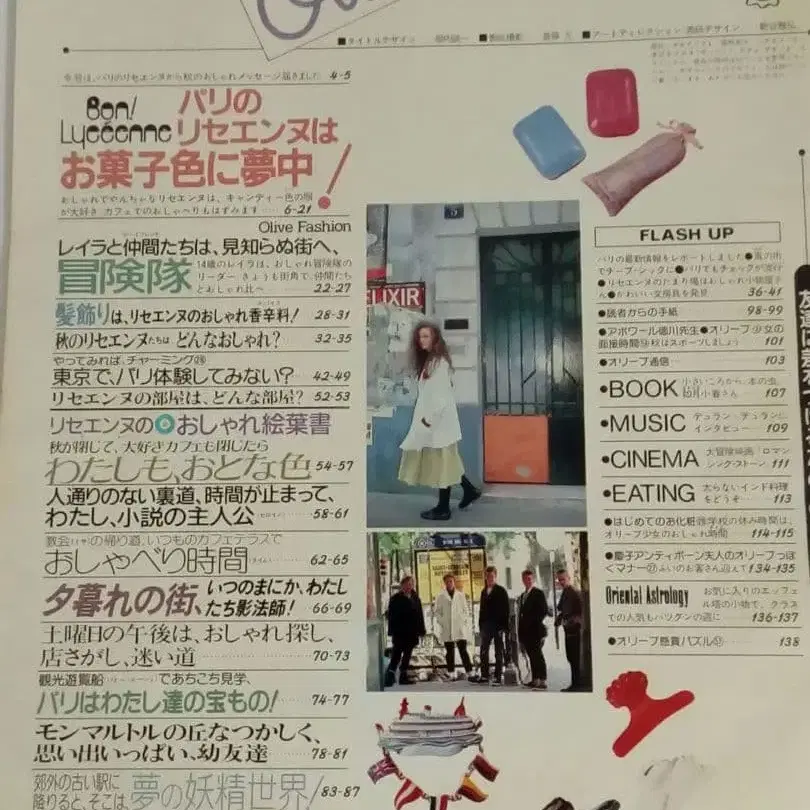 ■タイトルデザイン
■アートディレクション
今号は、パリのリセエンヌから秋のおしゃれメッセージ届きました 4-5
Bon!
Lycéenne
パリの
リセエンヌは
お菓子色に夢中!
おしゃれでやんちゃなリセエンヌは、キャンディー色の服
が大好き カフェでのおしゃべりもはずみます…… 6-21
Olive Fashion
レイラと仲間たちは、見知らぬ街へ、
冒険隊
14歳のレイラは、おしゃれ冒険隊の
リーダー きょうも街角で、仲間たち
とおしゃれ比べ 22-27
髪飾りは、リセエンヌのおしゃれ香辛料! 28-31
秋のリセエンヌたちは どんなおしゃれ? 32-35
やってみれば、チャーミング
東京で、パリ体験してみない? 42-49
リセエンヌの部屋は、どんな部屋? 52-53
リセエンヌのおしゃれ絵葉書
秋が閉じて、大好きカフェも閉じたら
わたしも、おとな色 54-57
人通りのない裏道、時間が止まって、
わたし、小説の主人公 58-61
教会の帰り道、いつものカフェテラスで
おしゃべり時間 62-65
夕暮れの街、いつのまにか、わたし
たち影法師! 66-69
土曜日の午後は、おしゃれ探し、
店さがし、迷い道 70-73
観光遊覧船であちこち見学、
パリはわたし達の宝もの! 74-77
モンマルトルの丘なつかしく、
思い出いっぱい、幼友達 78-81
郊外の古い駅に
降りると、そこは、夢の妖精世界! 83-87
ELIXIR
FLASH UP
パリの最新情報をレポートしました●
でチープ・シックに●パリでもチェックが流行
●リセエンヌのたまり場はおしゃれ小物屋さ
ん●かわいい文房具を発見 36-41
●読者からの手紙 98-99
●アポワール徳川先生●オリーブ少女の
面接時間 秋はスポーツしましょう 101
●オリーブ通信 103
●BOOK 107
●MUSIC デュラン・デュランに
インタビュー 109
●CINEMA 大冒険映画「ロマン
シング・ストーン」 111
●EATING 太らないインド料理
をどうぞ 113
●はじめてのお化粧 学校の休み時間は、
オリーブ少女のおしゃれ時間 114-115
●慶子アンティポーン夫人のオリーブっぽ
くマナー よいお客さん迎えて 134-135
Oriental Astrology お気に入りのエッフェ
ル塔の小物で、クラス
での人気もバツグンの週に 136-137
●オリーブ懸賞パズル 138